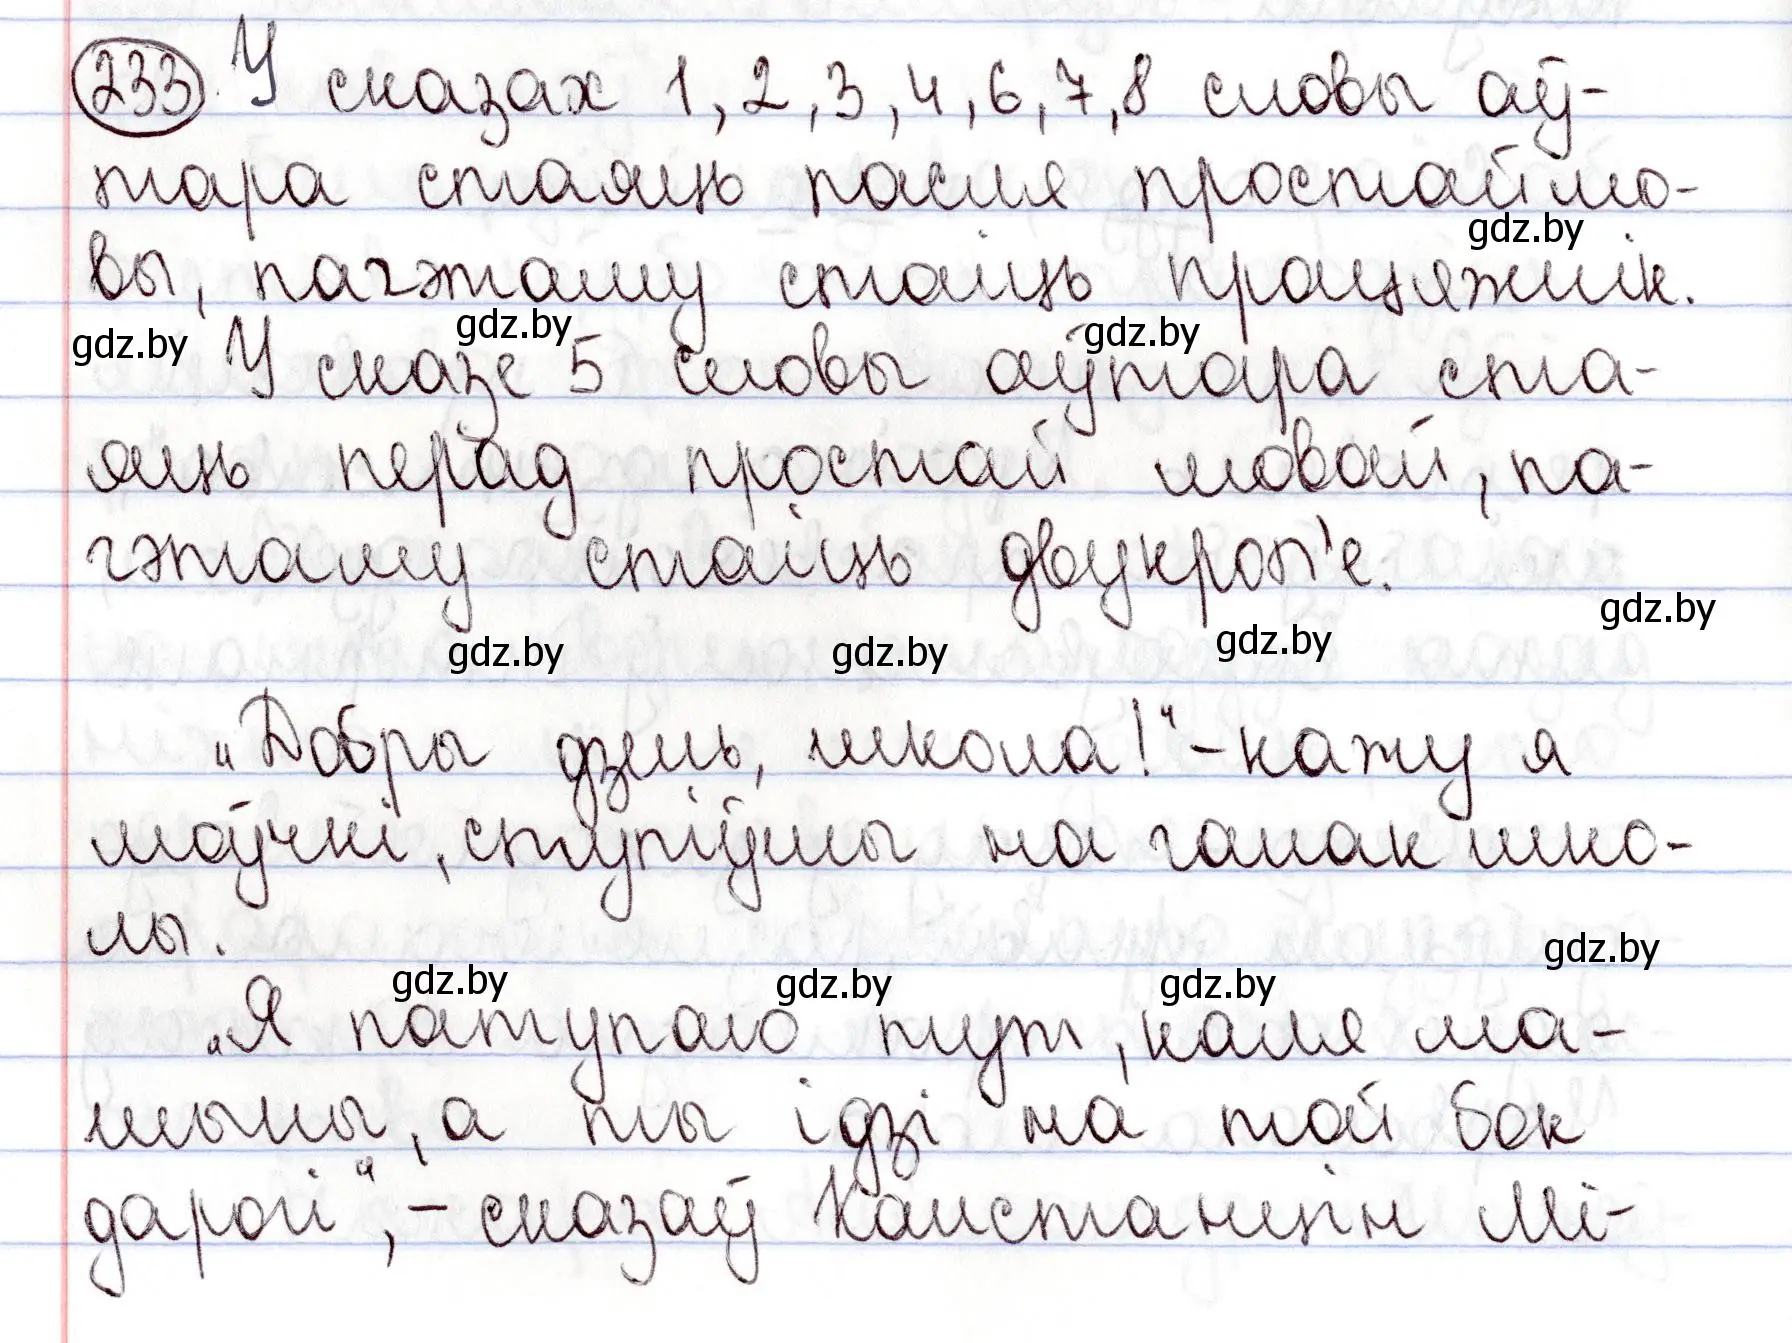 233. У сказах 1, 2, 3, 4, 6, 7, 8 словы аў-
тара стаяць пасля простай мо-
вы, пагэтаму стаіць працяжнік.
У сказе 5 словы аўтара ста-
яць перад простай мовай, па-
гэтаму стаіць двукроп'е.
„Добры дзень, школа!“ – кажу я
моўчкі, ступіўшы на ганак шко-
лы.
„Я патупаю тут, каля ма-
шыны, а ты ідзі на той бок
дарогі“, – сказаў Канстанцін Мі-
gdz.by
gdz.by
gdz.by
gdz.by
gdz.by
gdz.by
gdz.by
gdz.by
gdz.by
gdz.by
gdz.by
gdz.by